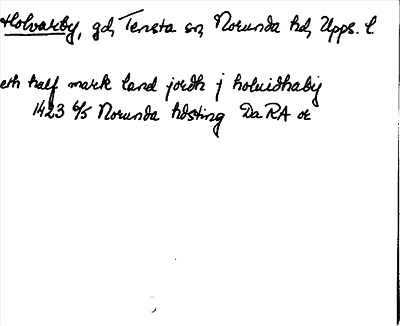 Holvarby, gd, Tensta sn, Norunda hd, Upps. l
eth half mark land jordh j holuidhaby
1423 6/5 Norunda hdsting Da RA or